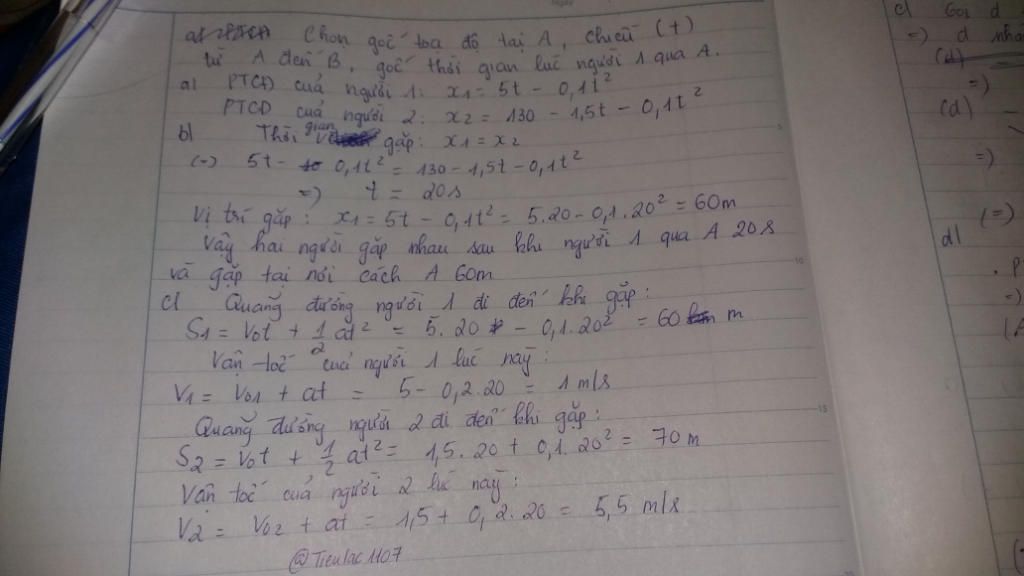 Chọn gốc tọa độ tại A, chiều (+)
từ A đến B, gốc thời gian lúc người 1 qua A.
a) PTCĐ của người 1: x1 = 5t - 0,1t²
PTCĐ của người 2: x2 = 130 - 1,5t - 0,1t²
b) Thời gian gặp: x1 = x2
(=) 5t - 0,1t² = 130 - 1,5t - 0,1t²
=) t = 20s
Vị trí gặp: x1 = 5t - 0,1t² = 5.20 - 0,1.20² = 60m
Vậy hai người gặp nhau sau khi người 1 qua A 20s
và gặp tại nơi cách A 60m
c) Quãng đường người 1 đi đến khi gặp:
S1 = v0t + 1/2 at² = 5.20 - 0,1.20² = 60 m
Vận tốc của người 1 lúc này:
V1 = V01 + at = 5 - 0,2.20 = 1 m/s
Quãng đường người 2 đi đến khi gặp:
S2 = v0t + 1/2 at² = 1,5.20 + 0,1.20² = 70m
Vận tốc của người 2 lúc này:
V2 = V02 + at = 1,5 + 0,2.20 = 5,5 m/s
@Tieulac1107
c) Gọi d
=) d
(d)
=)
(d)
=)
(=)
d)
=)